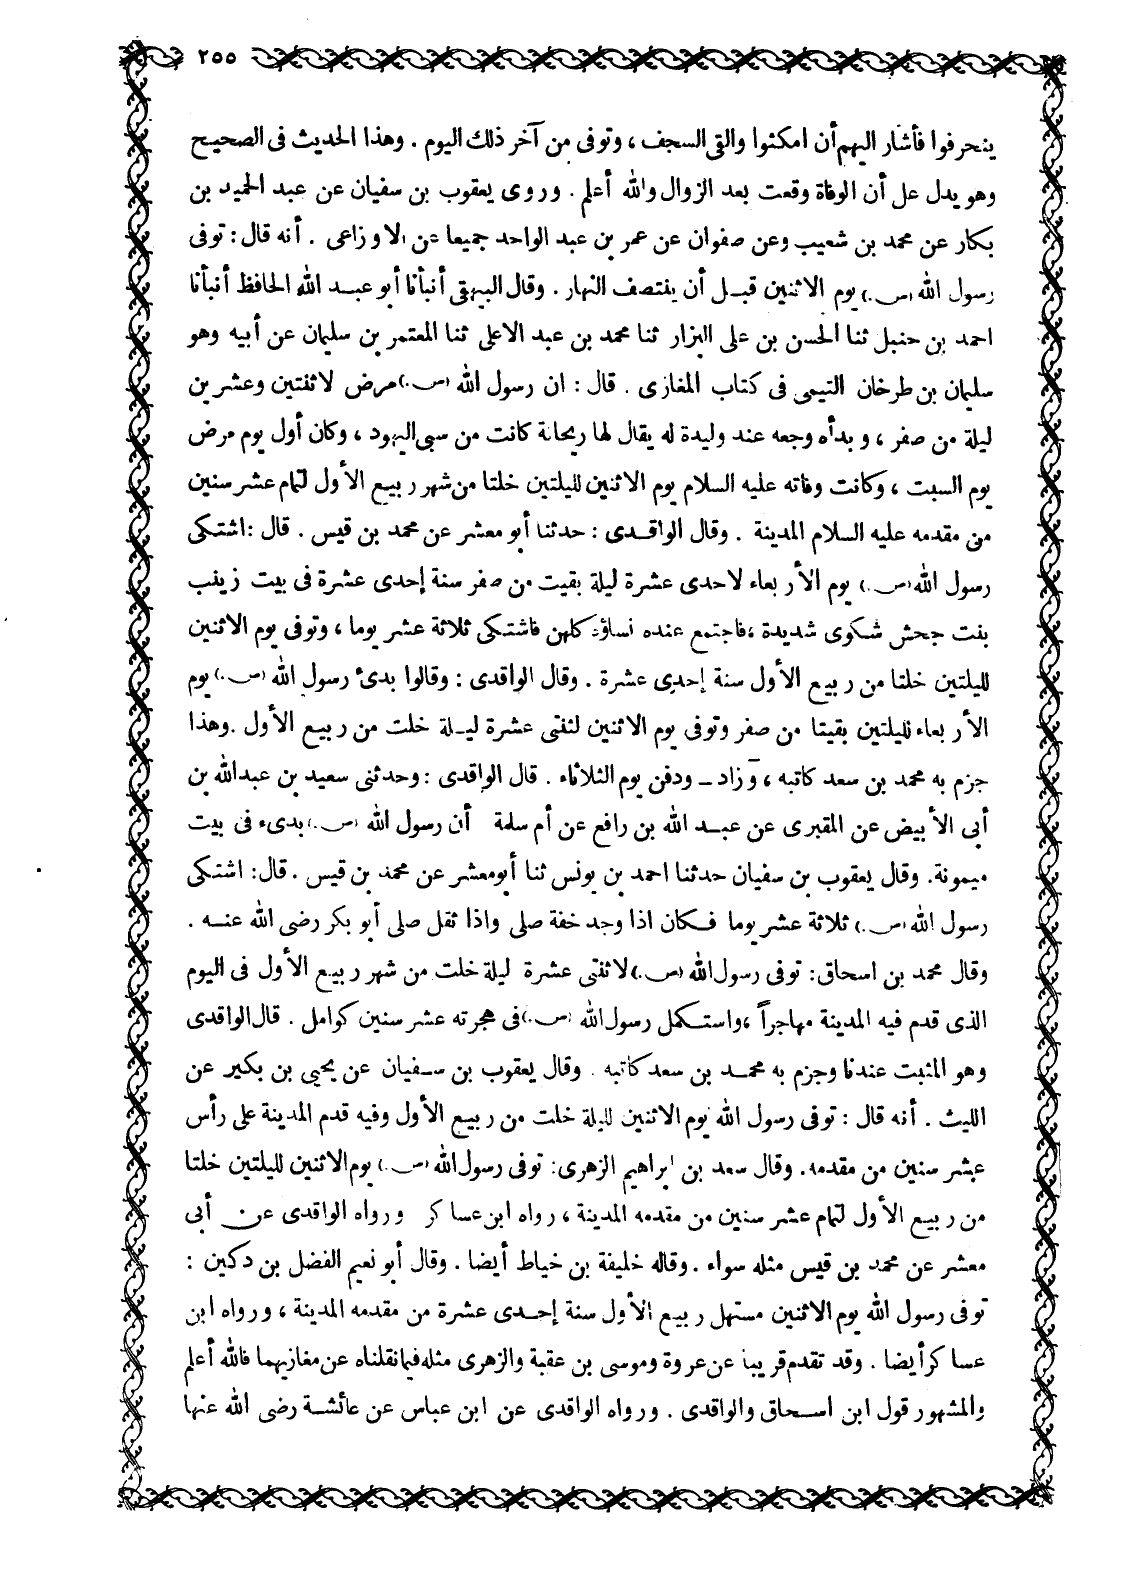 ٢٥٥
ينحرفوا فأشار اليهم أن امكثوا والقى السجف ، وتوفى من آخر ذلك اليوم . وهذا الحديث فى الصحيح
وهو يدل عل أن الوفاة وقعت بعد الزوال والله أعلم . وروى يعقوب بن سفيان عن عبد الحميد بن
بكار عن محمد بن شعيب وعن صفوان عن عمر بن عبد الواحد جميعا عن الاوزاعى . أنه قال : توفى
رسول الله (ص.) يوم الاثنين قبل أن ينتصف النهار . وقال البيهقى أنبأنا أبو عبد الله الحافظ أنبأنا
احمد بن حنبل ثنا الحسن بن على البزار ثنا محمد بن عبد الاعلى ثنا المعتمر بن سليمان عن أبيه وهو
سليمان بن طرخان التيمى فى كتاب المغازى . قال : ان رسول الله (ص.) مرض لاثنتين وعشرين
ليلة من صفر ، وبدأه وجعه عند وليدة له يقال لها ريحانة كانت من سبى اليهود ، وكان أول يوم مرض
يوم السبت ، وكانت وفاته عليه السلام يوم الاثنين لليلتين خلتا من شهر ربيع الأول لتمام عشر سنين
من مقدمه عليه السلام المدينة . وقال الواقدى : حدثنا أبو معشر عن محمد بن قيس . قال : اشتكى
رسول الله (ص.) يوم الأربعاء لاحدى عشرة ليلة بقيت من صفر سنة إحدى عشرة فى بيت زينب
بنت جحش شكوى شديدة ، فاجتمع عنده نساؤه كلهن فاشتكى ثلاثة عشر يوما ، وتوفى يوم الاثنين
لليلتين خلتا من ربيع الأول سنة إحدى عشرة . وقال الواقدى : وقالوا بدئ رسول الله (ص.) يوم
الأربعاء لليلتين بقيتا من صفر وتوفى يوم الاثنين لثنتى عشرة ليلة خلت من ربيع الأول . وهذا
جزم به محمد بن سعد كاتبه ، وزاد ـ ودفن يوم الثلاثاء . قال الواقدى : وحدثنى سعيد بن عبدالله بن
أبى الأبيض عن المقبرى عن عبد الله بن رافع عن أم سلمة أن رسول الله (ص.) بدىء فى بيت
ميمونة . وقال يعقوب بن سفيان حدثنا احمد بن يونس ثنا أبو معشر عن محمد بن قيس . قال : اشتكى
رسول الله (ص.) ثلاثة عشر يوما فكان اذا وجد خفة صلى واذا ثقل صلى أبو بكر رضى الله عنه .
وقال محمد بن اسحاق : توفى رسول الله (ص.) لاثنتى عشرة ليلة خلت من شهر ربيع الأول فى اليوم
الذى قدم فيه المدينة مهاجراً ، واستكمل رسول الله (ص.) فى هجرته عشر سنين كوامل . قال الواقدى
وهو المثبت عندنا وجزم به محمد بن سعد كاتبه . وقال يعقوب بن سفيان عن يحيى بن بكير عن
الليث . أنه قال : توفى رسول الله يوم الاثنين لليلة خلت من ربيع الأول وفيه قدم المدينة على رأس
عشر سنين من مقدمه . وقال سعد بن ابراهيم الزهرى : توفى رسول الله (ص.) يوم الاثنين لليلتين خلتا
من ربيع الأول لتمام عشر سنين من مقدمه المدينة ، رواه ابن عساكر ورواه الواقدى عن أبى
معشر عن محمد بن قيس مثله سواء . وقاله خليفة بن خياط أيضا . وقال أبو نعيم الفضل بن دكين :
توفى رسول الله يوم الاثنين مستهل ربيع الأول سنة إحدى عشرة من مقدمه المدينة ، ورواه ابن
عساكر أيضا . وقد تقدم قريبا عن عروة وموسى بن عقبة والزهرى مثله فيما نقلناه عن مغازيهما فالله أعلم
والمشهور قول ابن اسحاق والواقدى . ورواه الواقدى عن ابن عباس عن عائشة رضى الله عنها